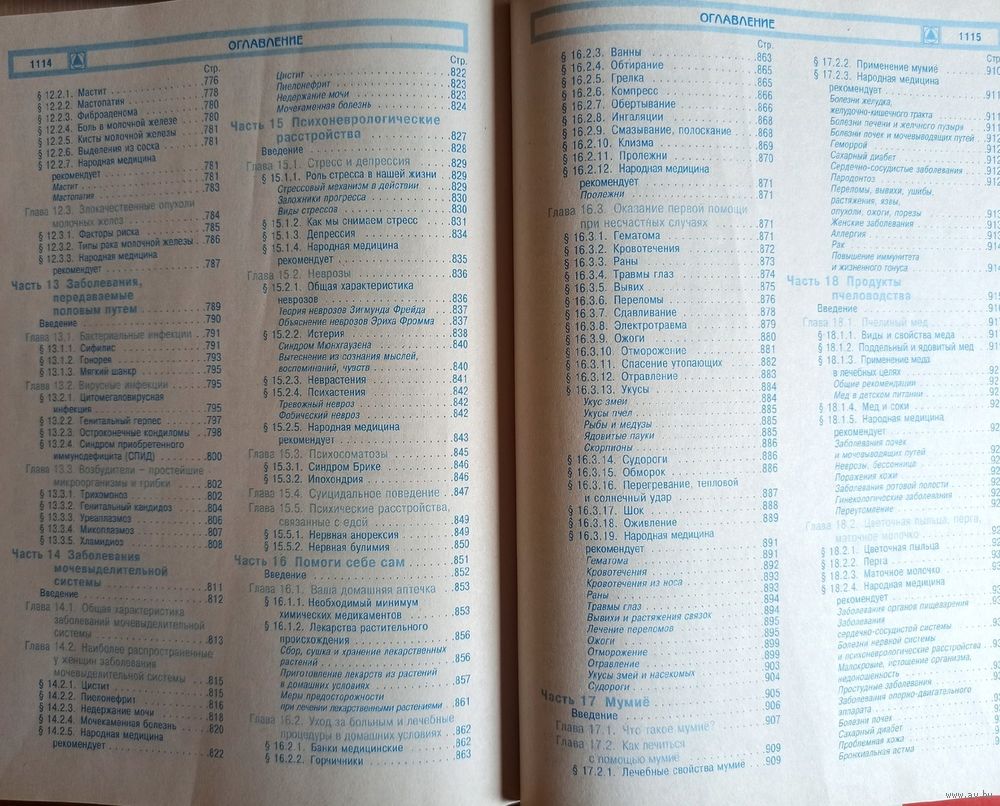 1114
ОГЛАВЛЕНИЕ
Стр.
776
§ 12.2.1. Мастит 778
§ 12.2.2. Мастопатия 780
§ 12.2.3. Фиброаденома 780
§ 12.2.4. Боль в молочной железе 781
§ 12.2.5. Кисты молочной железы
§ 12.2.6. Выделения из соска
§ 12.2.7. Народная медицина
рекомендует 781
Мастит 781
Мастопатия 783
Глава 12.3. Злокачественные опухоли
молочных желез 784
§ 12.3.1. Факторы риска 785
§ 12.3.2. Типы рака молочной железы 786
§ 12.3.3. Народная медицина
рекомендует 787
Часть 13 Заболевания,
передаваемые
половым путем 789
Введение 790
Глава 13.1. Бактериальные инфекции 791
§ 13.1.1 Сифилис 791
§ 13.1.2 Гонорея 793
§ 13.1.3. Мягкий шанкр 795
Глава 13.2. Вирусные инфекции 795
§ 13.2.1. Цитомегаловирусная
инфекция 795
§ 13.2.2. Генитальный герпес 797
§ 13.2.3. Остроконечные кондиломы 798
§ 13.2.4 Синдром приобретенного
иммунодефицита (СПИД) 800
Глава 13.3. Возбудители – простейшие
микроорганизмы и грибки 802
§ 13.3.1. Трихомоноз 802
§ 13.3.2. Генитальный кандидоз 804
§ 13.3.3. Уреаплазмоз 806
§ 13.3.4. Микоплазмоз 807
§ 13.3.5. Хламидиоз 808
Часть 14 Заболевания
мочевыделительной
системы 811
Введение 812
Глава 14.1. Общая характеристика
заболеваний мочевыделительной
системы 813
Глава 14.2. Наиболее распространенные
у женщин заболевания
мочевыделительной системы 815
§ 14.2.1. Цистит 815
§ 14.2.2. Пиелонефрит 816
§ 14.2.3. Недержание мочи 818
§ 14.2.4. Мочекаменная болезнь 820
§ 14.2.5. Народная медицина
рекомендует 822
Стр.
Цистит 822
Пиелонефрит 823
Недержание мочи 823
Мочекаменная болезнь 824
Часть 15 Психоневрологические
расстройства 827
Введение 828
Глава 15.1. Стресс и депрессия 829
§ 15.1.1. Роль стресса в нашей жизни 829
Стрессовый механизм в действии 829
Заложники прогресса 830
Виды стрессов 830
§ 15.1.2 Как мы снимаем стресс 831
§ 15.1.3. Депрессия 834
§ 15.1.4. Народная медицина
рекомендует 835
Глава 15.2. Неврозы 836
§ 15.2.1. Общая характеристика
неврозов 836
Теория неврозов Зигмунда Фрейда 837
Объяснение неврозов Эриха Фромма 837
§ 15.2.2. Истерия 838
Синдром Мюнхгаузена 840
Вытеснение из сознания мыслей,
воспоминаний, чувств 840
§ 15.2.3. Неврастения 841
§ 15.2.4. Психастения 842
Тревожный невроз 842
Фобический невроз 842
§ 15.2.5. Народная медицина
рекомендует 843
Глава 15.3. Психосоматозы 845
§ 15.3.1. Синдром Брике 846
§ 15.3.2. Ипохондрия 846
Глава 15.4. Суицидальное поведение 847
Глава 15.5. Психические расстройства,
связанные с едой 849
§ 15.5.1. Нервная анорексия 849
§ 15.5.2. Нервная булимия 850
Часть 16 Помоги себе сам 851
Введение 852
Глава 16.1. Ваша домашняя аптечка 853
§ 16.1.1. Необходимый минимум
химических медикаментов 853
§ 16.1.2. Лекарства растительного
происхождения 856
Сбор, сушка и хранение лекарственных
растений 856
Приготовление лекарств из растений
в домашних условиях 857
Меры предосторожности
при лечении лекарственными растениями 861
Глава 16.2. Уход за больным и лечебные
процедуры в домашних условиях 862
§ 16.2.1. Банки медицинские 862
§ 16.2.2. Горчичники 863
ОГЛАВЛЕНИЕ
1115
Стр.
§ 16.2.3. Ванны 863
§ 16.2.4. Обтирание 865
§ 16.2.5. Грелка 865
§ 16.2.6. Компресс 866
§ 16.2.7. Обертывание 866
§ 16.2.8. Ингаляции 868
§ 16.2.9. Смазывание, полоскание 868
§ 16.2.10. Клизма 869
§ 16.2.11. Пролежни 870
§ 16.2.12. Народная медицина
рекомендует 871
Пролежни 871
Глава 16.3. Оказание первой помощи
при несчастных случаях 871
§ 16.3.1. Гематома 871
§ 16.3.2. Кровотечения 872
§ 16.3.3. Раны 873
§ 16.3.4. Травмы глаз 874
§ 16.3.5. Вывих 875
§ 16.3.6. Переломы 876
§ 16.3.7. Сдавливание 878
§ 16.3.8. Электротравма 879
§ 16.3.9. Ожоги 880
§ 16.3.10. Отморожение 881
§ 16.3.11. Спасение утопающих 882
§ 16.3.12. Отравление 883
§ 16.3.13. Укусы 884
Укус змеи 884
Укусы пчел 885
Рыбы и медузы 885
Ядовитые пауки 885
Скорпионы 886
§ 16.3.14. Судороги 886
§ 16.3.15. Обморок 886
§ 16.3.16. Перегревание, тепловой
и солнечный удар 887
§ 16.3.17. Шок 888
§ 16.3.18. Оживление 889
§ 16.3.19. Народная медицина
рекомендует 891
Гематома 892
Кровотечения 893
Кровотечения из носа 893
Раны 894
Травмы глаз 894
Вывихи и растяжения связок 895
Лечение переломов 895
Ожоги 899
Отморожение 899
Отравление 903
Укусы змей и насекомых 904
Судороги
Часть 17 Мумиё 905
Введение 906
Глава 17.1. Что такое мумиё? 907
Глава 17.2. Как лечиться
с помощью мумиё 909
§ 17.2.1. Лечебные свойства мумиё 909
§ 17.2.2. Применение мумиё
§ 17.2.3. Народная медицина
рекомендует
Болезни желудка,
желудочно-кишечного тракта
Болезни печени и желчного пузыря
Болезни почек и мочевыводящих путей
Геморрой
Сахарный диабет
Сердечно-сосудистые заболевания
Пародонтоз
Переломы, вывихи, ушибы,
растяжения, язвы,
опухоли, ожоги, порезы
Женские заболевания
Аллергия
Рак
Повышение иммунитета
и жизненного тонуса
Часть 18 Продукты
пчеловодства
Введение
Глава 18.1. Пчелиный мед
§ 18.1.1. Виды и свойства меда
§ 18.1.2. Поддельный и ядовитый мед
§ 18.1.3. Применение меда
в лечебных целях
Общие рекомендации
Мед в детском питании
§ 18.1.4. Мед и соки
§ 18.1.5. Народная медицина
рекомендует
Заболевания почек
и мочевыводящих путей
Неврозы, бессонница
Поражения кожи
Заболевания ротовой полости
Гинекологические заболевания
Переутомление
Глава 18.2. Цветочная пыльца, перга,
маточное молочко
§ 18.2.1. Цветочная пыльца
§ 18.2.2. Перга
§ 18.2.3. Маточное молочко
§ 18.2.4. Народная медицина
рекомендует
Заболевания органов пищеварения
Заболевания
сердечно-сосудистой системы
Болезни нервной системы
и психоневрологические расстройства
Малокровие, истощение организма,
недоношенность
Простудные заболевания
Заболевания опорно-двигательного
аппарата
Болезни почек
Сахарный диабет
Проблемная кожа
Бронхиальная астма
www.ay.by